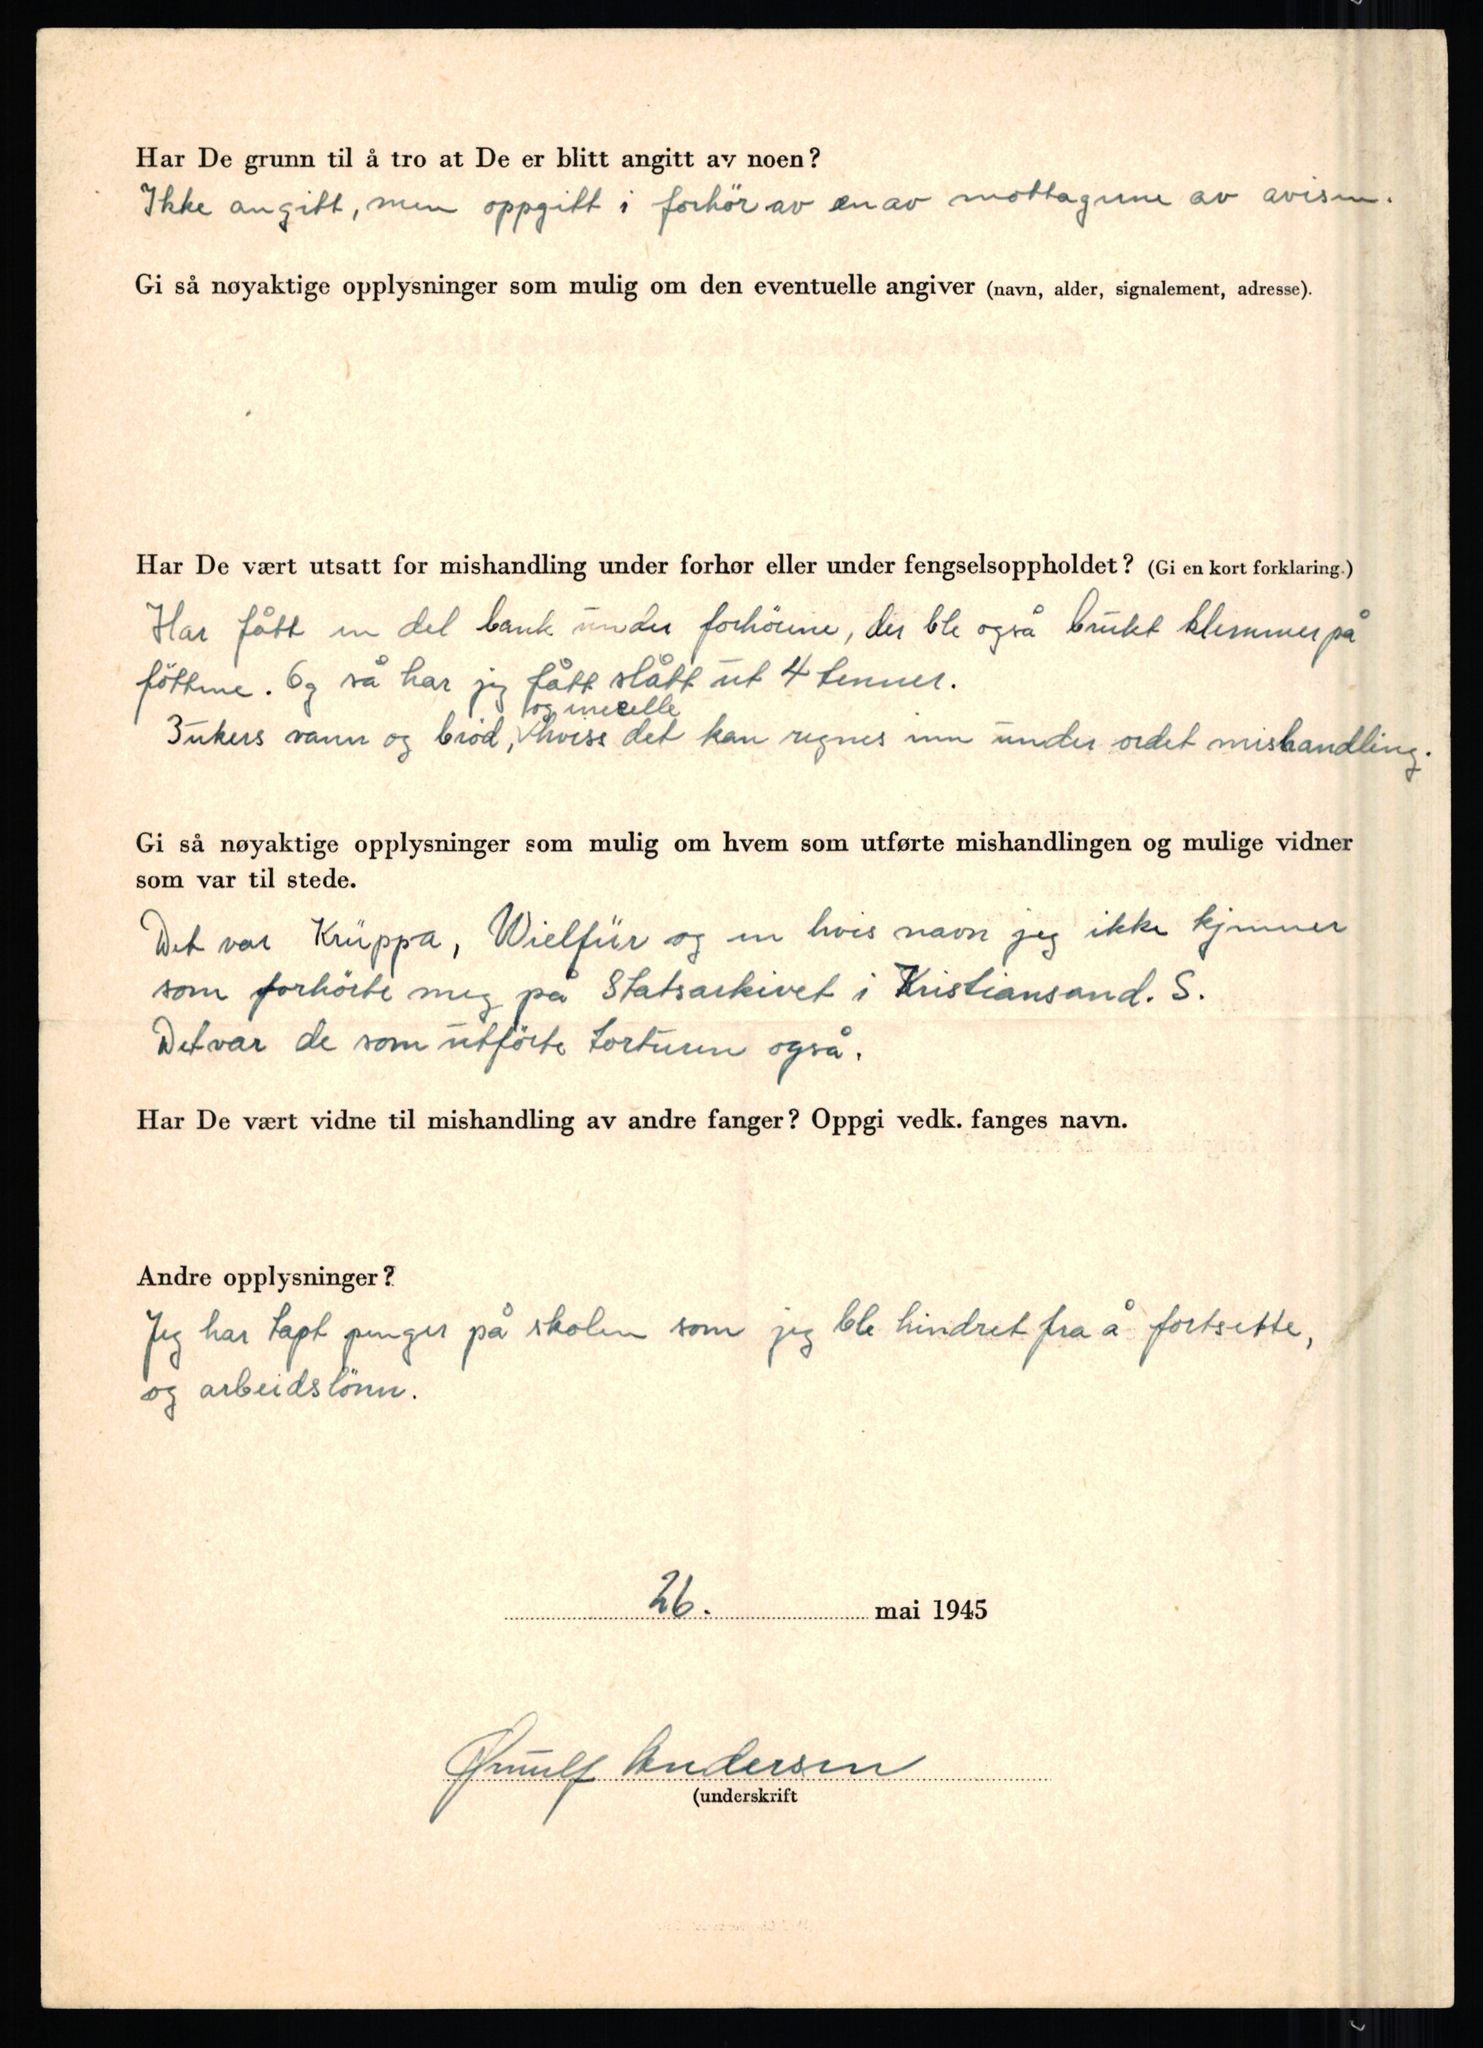 Har De grunn til å tro at De er blitt angitt av noen?
Ikke angitt, men oppgitt i forhör av en av mottagerne av avisen.
Gi så nøyaktige opplysninger som mulig om den eventuelle angiver (navn, alder, signalement, adresse).
Har De vært utsatt for mishandling under forhør eller under fengselsoppholdet? (Gi en kort forklaring.)
Har fått en del bank under forhörene, der ble også brukt klemmer på
föttene. Og så har jeg fått slått ut 4 tenner.
og mecelle
3 ukers vann og bröd, hviss det kan regnes inn under ordet mishandling.
Gi så nøyaktige opplysninger som mulig om hvem som utførte mishandlingen og mulige vidner
som var til stede.
Det var Krüppa, Wielfür og en hvis navn jeg ikke kjenner
som forhörte meg på Statsarkivet i Kristiansand. S.
Det var de som utförte torturen også.
Har De vært vidne til mishandling av andre fanger? Oppgi vedk. fanges navn.
Andre opplysninger?
Jeg har tapt penger på skolen som jeg ble hindret fra å fortsette,
og arbeidslönn.
26. mai 1945
Ørnulf Andersen
(underskrift